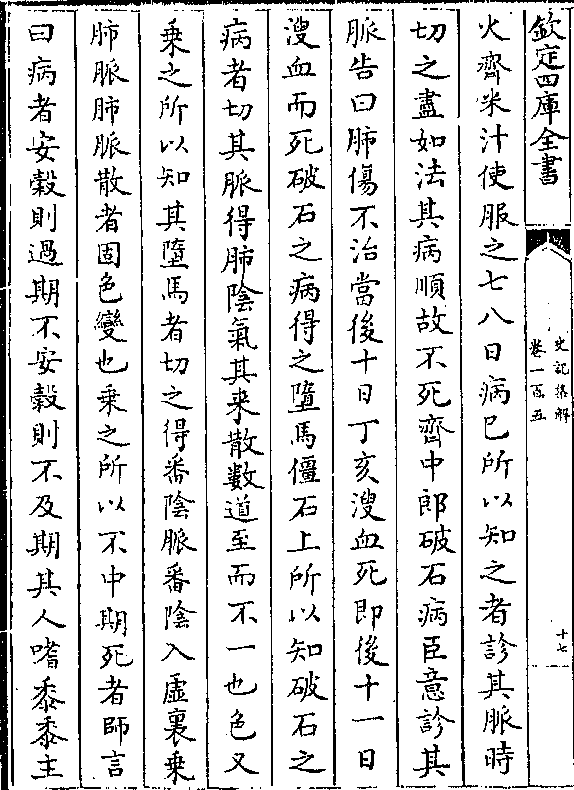 欽定四庫全書
史記集解
卷一百五
十七
火齊米汁使服之七八日病已所以知之者診其脈時
切之盡如法其病順故不死齊中郎破石病臣意診其
脈告曰肺傷不治當後十日丁亥溲血死即後十一日
溲血而死破石之病得之墮馬僵石上所以知破石之
病者切其脈得肺陰氣其來散數道至而不一也色又
乘之所以知其墮馬者切之得番陰脈番陰入虛裏乘
肺脈肺脈散者固色變也乘之所以不中期死者師言
曰病者安穀則過期不安穀則不及期其人嗜黍黍主